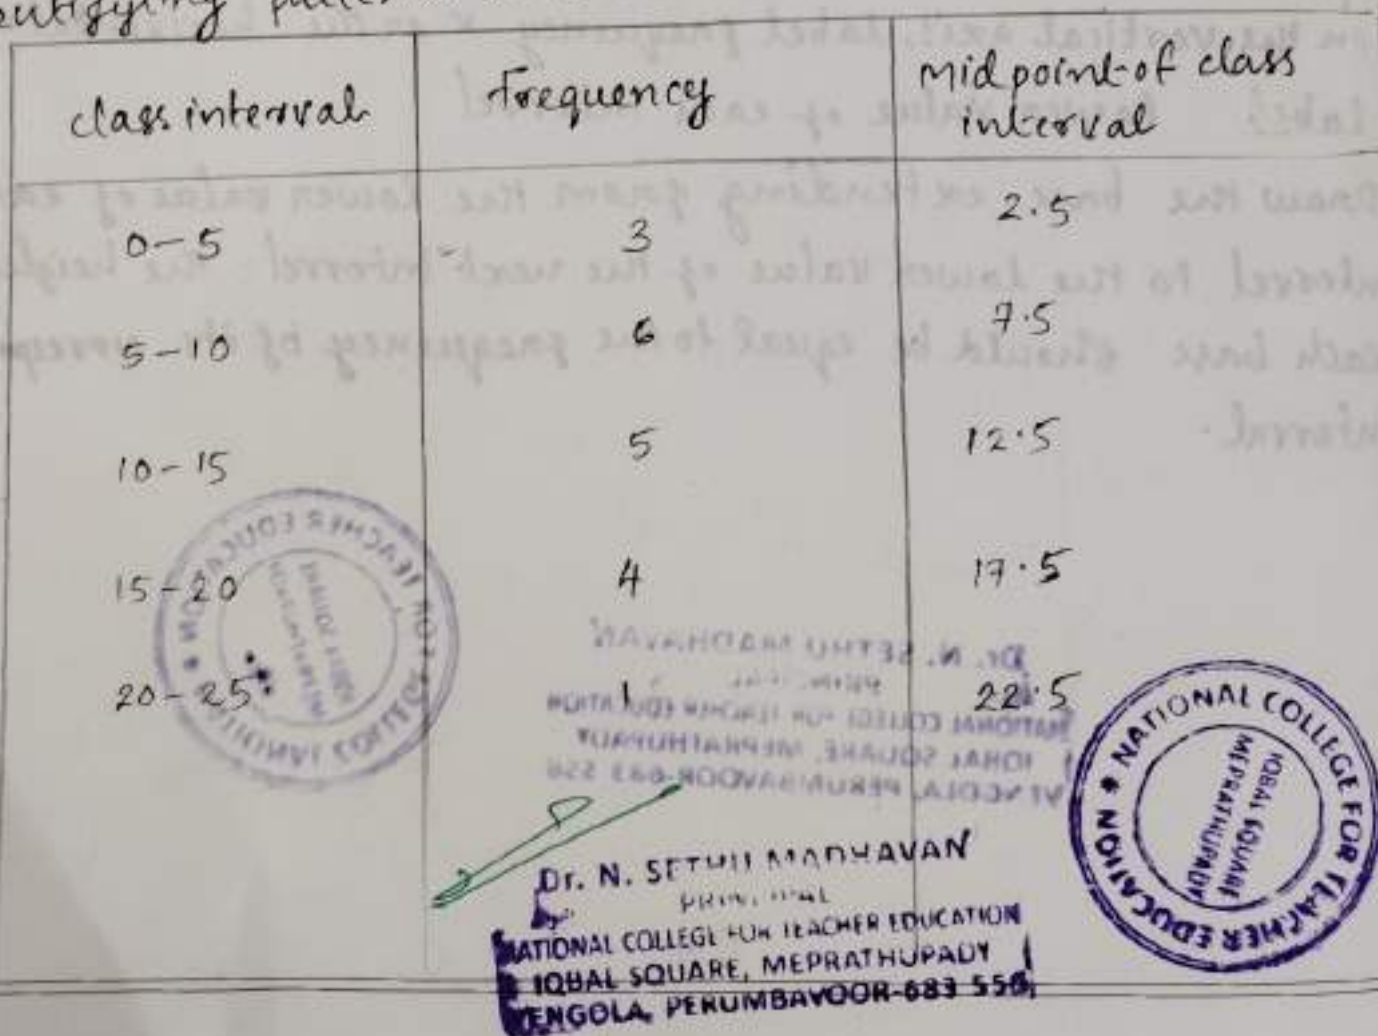 class interval Frequency Midpoint of class
interval
0-5 3 2.5
5-10 6 7.5
10-15 5 12.5
15-20 4 17.5
20-25 1 22.5
Dr. N. SETHU MADHAVAN
PRINCIPAL
NATIONAL COLLEGE FOR TEACHER EDUCATION
IQBAL SQUARE, MEPRATHUPADY
VENGOLA, PERUMBAVOOR-683 556
NATIONAL COLLEGE FOR TEACHER EDUCATION
IQBAL SQUARE
MEPRATHUPADY